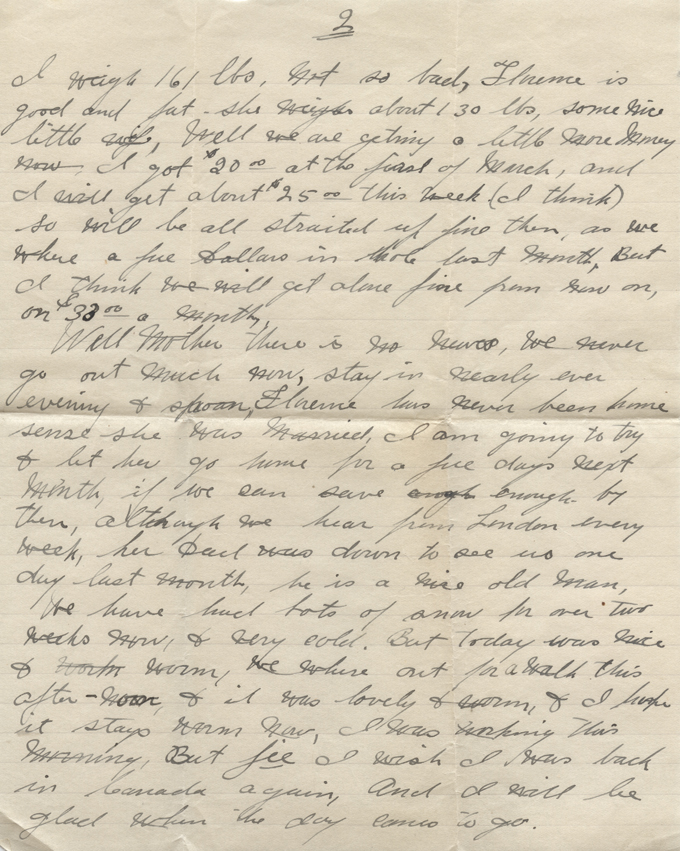 2
I weigh 161 lbs, Not so bad, Florence is
good and fat - she weighs about 130 lbs, some nice
little wife, Well we are geting a little more Money
now, I got $20 00 at the first of March, and
I will get about $25 00 this week (I think)
so will be all straited up fine then, as we
where a fue Dollars in hole last Month, But
I think we will get alone fine from now on,
on $33 00 a month,
Well Mother there is no news, we never
go out much now, stay in nearly ever
evening & Florence has never been home
sense she was Married, I am going to try
& let her go home for a fue days next
Month, if we can save enough by
then, although we hear from London every
week, her Dad was down to see us one
day last month, he is a nice old man,
We have had lots of snow for over two
weeks now, & very cold. But today was nice
& worm, we where out for a walk this
after-noon, & it was lovely & worm, & I hope
it stays worm now, I was working this
Morning, But gee I wish I was back
in Canada again, And I will be
glad when the day comes to go.